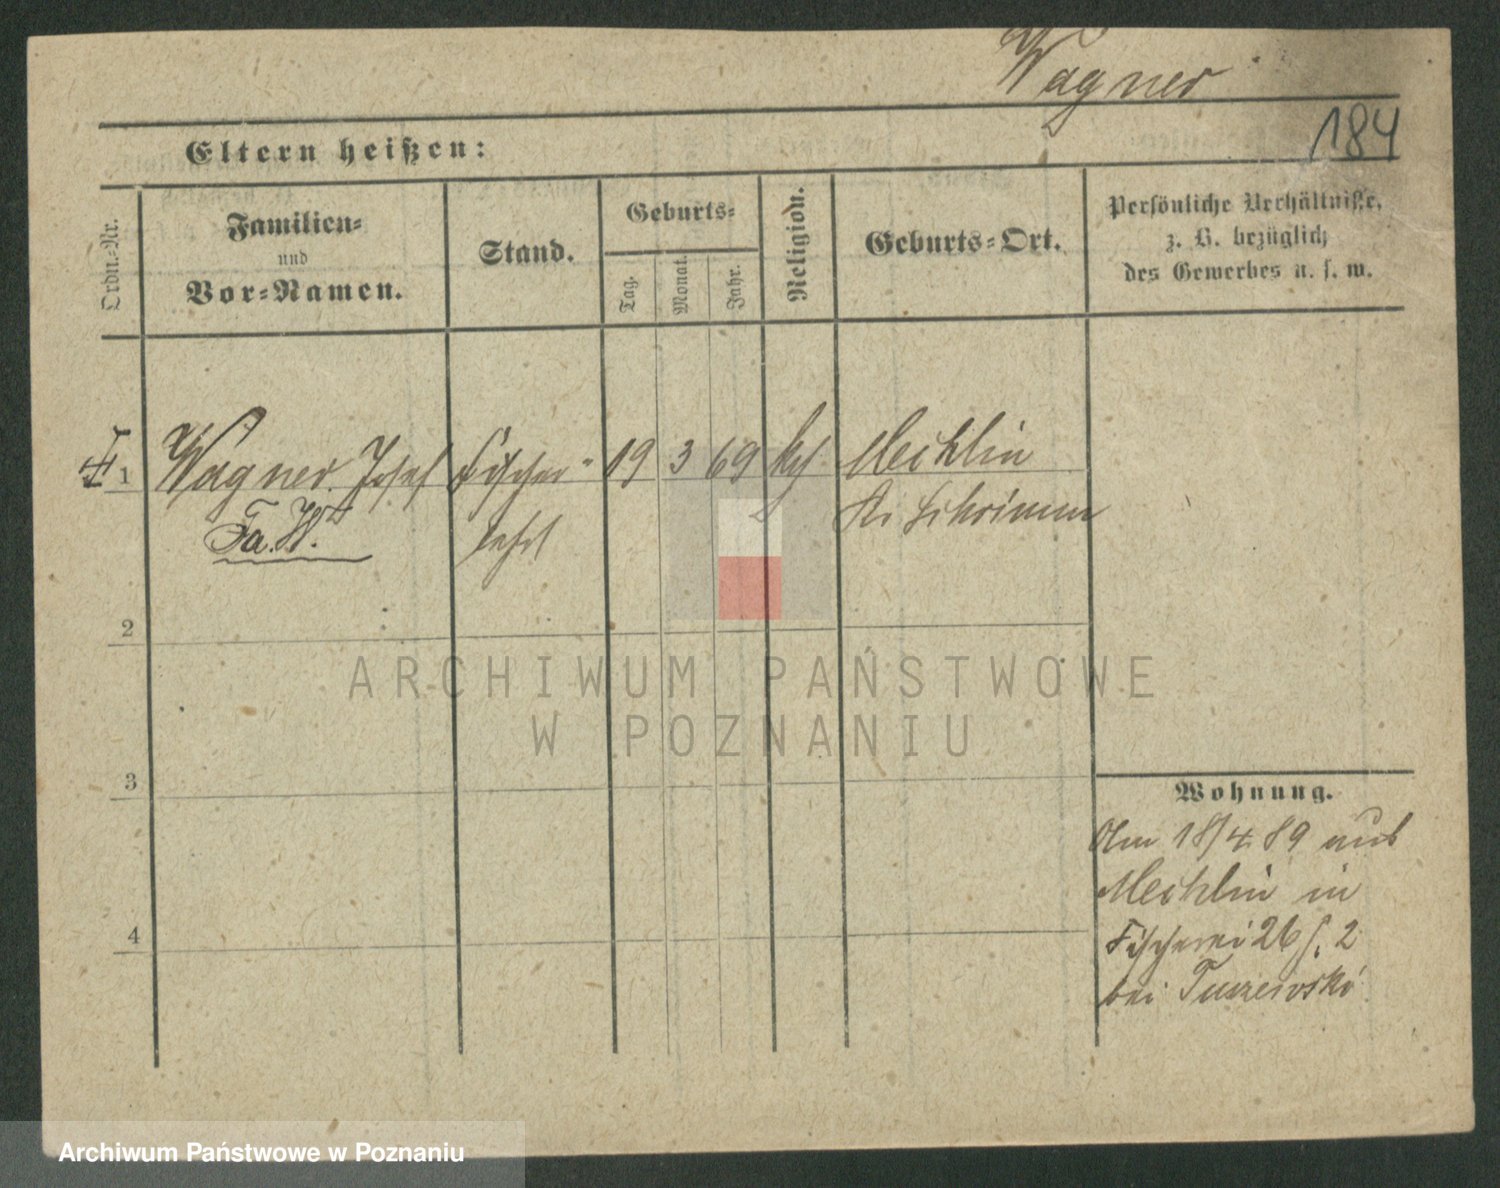 Wagner
184
Eltern heißen:
Ordn.-Nr.
Familien-
und
Vor-Namen.
Stand.
Geburts-
Tag.
Monat.
Jahr.
Religion.
Geburts-Ort.
Persönliche Verhältnisse,
z. B. bezüglich
des Gewerbes u. s. w.
1 Wagner Josef 19 3 69 kth Mechlin
Kr Schrimm
2
3
4
Wohnung.
18/4 89 aus
Mechlin in
Fischerei 26 2
bei
ARCHIWUM PAŃSTWOWE
W POZNANIU
Archiwum Państwowe w Poznaniu